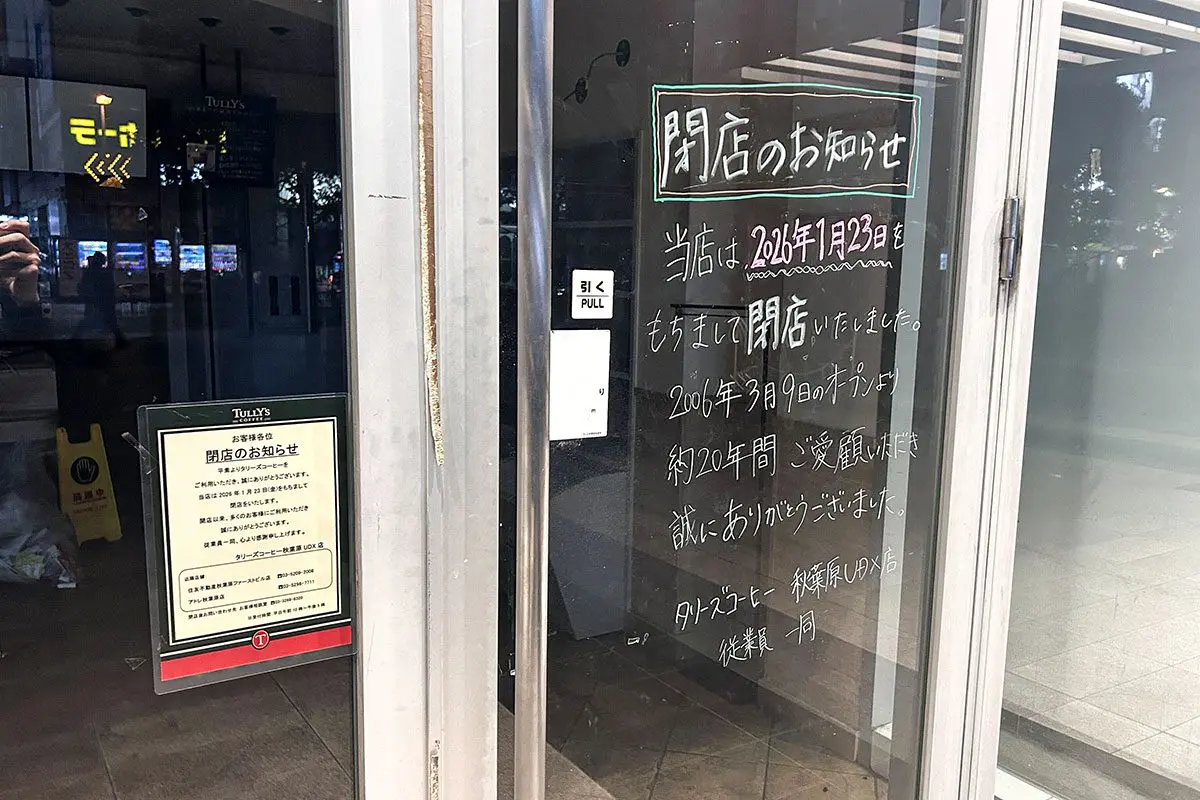 TULLY's
TULLY's
COFFEE
お客様各位
閉店のお知らせ
平素よりタリーズコーヒーを
ご利用いただき、誠にありがとうございます。
当店は 2026 年 1 月 23 日(金)をもちまして
閉店をいたします。
開店以来、多くのお客様にご利用いただき
誠にありがとうございます。
従業員一同、心より感謝申し上げます。
タリーズコーヒー秋葉原 UDX 店
近隣店舗
住友不動産秋葉原ファーストビル店
アトレ秋葉原店
T
引く
PULL
閉店のお知らせ
当店は、2026年1月23日を
もちまして閉店いたしました。
2006年3月9日のオープンより
約20年間 ご愛顧いただき
誠にありがとうございました。
タリーズコーヒー 秋葉原UDX店
従業員 一同